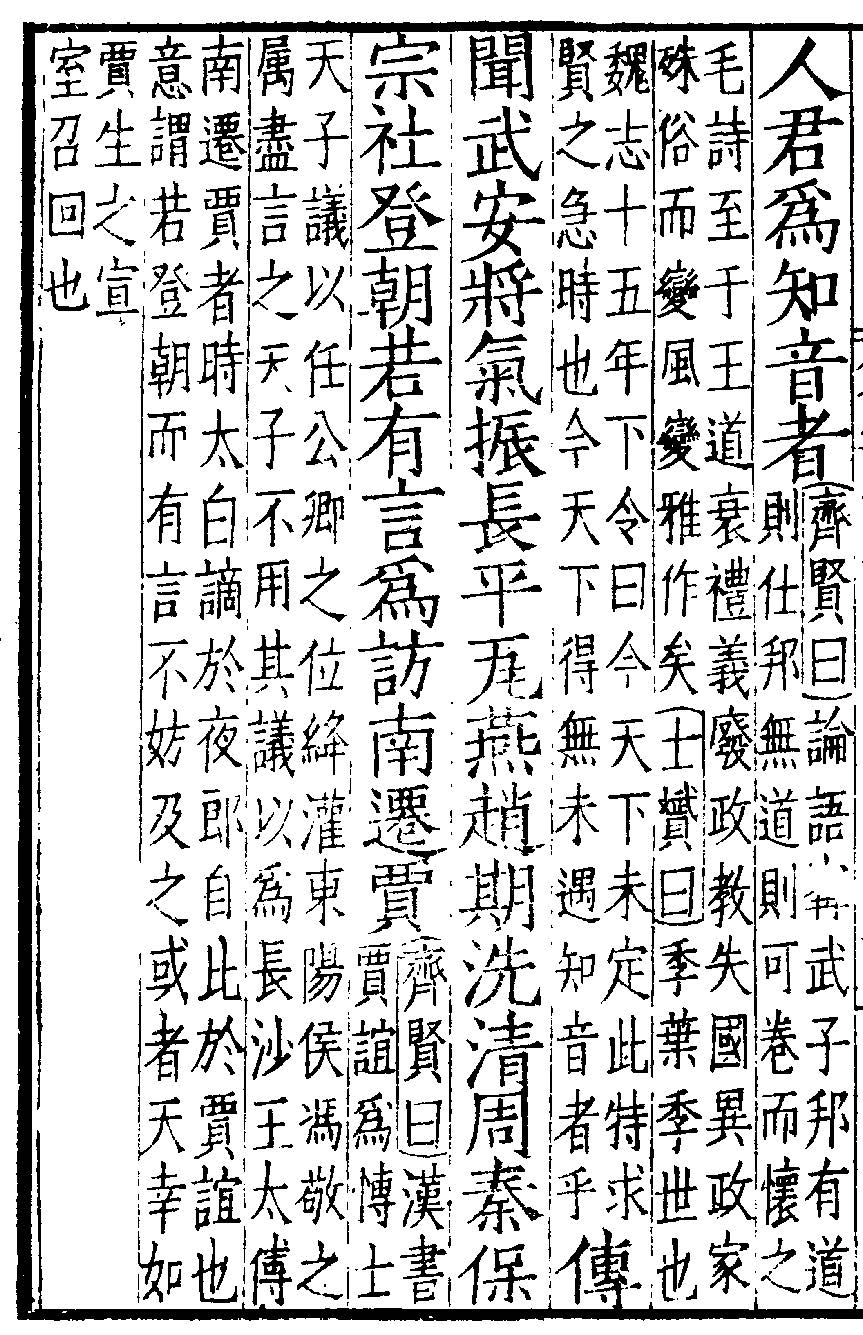 人君爲知音者
齊賢曰論語武子邦有道
則仕邦無道則可卷而懷之
毛詩至于王道衰禮義廢政教失國異政家
殊俗而變風變雅作矣士贇曰季葉季世也
魏志十五年下令曰今天下未定此特求
賢之急時也今天下得無未遇知音者乎
傳
聞武安將氣振長平瓦燕趙期洗清周秦保
宗社登朝若有言爲訪南遷賈
齊賢曰漢書
賈誼爲博士
天子議以任公卿之位絳灌東陽侯馮敬之
属盡言之天子不用其議以爲長沙王太傅
南遷賈者時太白謫於夜郎自此於賈誼也
意謂若登朝而有言不妨及之或者天幸如
賈生之宣
室召回也